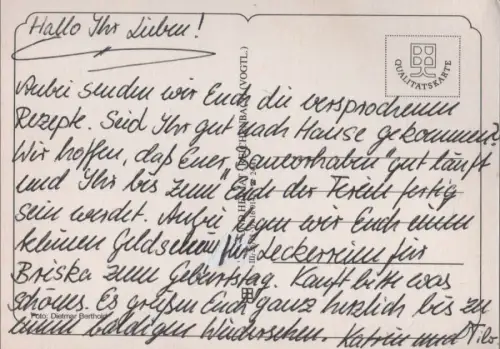 Hallo Ihr Lieben!
QUALITÄTSKARTE
Anbei senden wir Euch die versprochenen
Rezepte. Seid Ihr gut nach Hause gekommen?
Wir hoffen, daß Euer "Bauvorhaben" gut läuft
und Ihr bis zum Ende der Ferien fertig
sein werdet. Anbei legen wir Euch einen
kleinen Geldschein für Leckereien für
Briska zum Geburtstag. Kauft bitte was
schönes. Es grüßen Euch ganz herzlich bis zu
einem baldigen Wiedersehen. Katrin und Tilo
Foto: Dietmar Berthold
(VOGTL.)